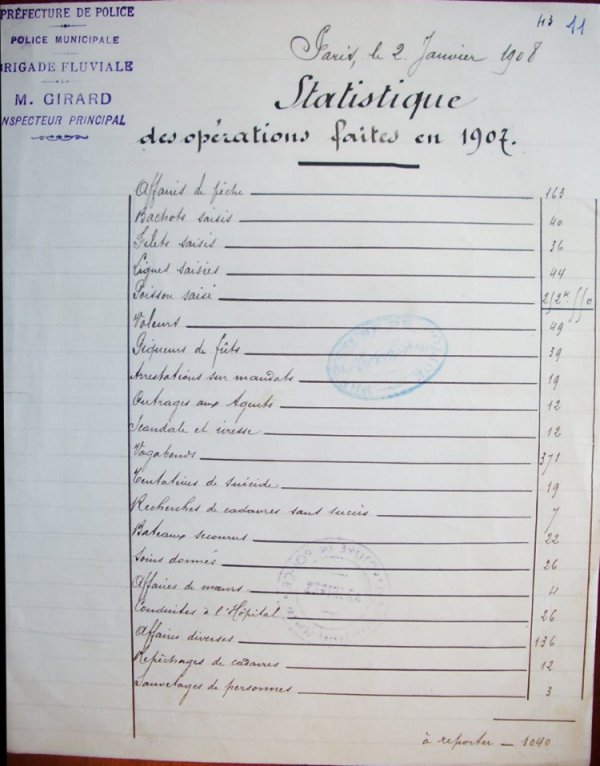 43 11
PRÉFECTURE DE POLICE
POLICE MUNICIPALE
BRIGADE FLUVIALE
M. GIRARD
INSPECTEUR PRINCIPAL
Paris, le 2 Janvier 1908
Statistique
des opérations faites en 1907.
Affaires de pêche 163
Bachots saisis 40
Filets saisis 36
Lignes saisies 44
Poisson saisi
Voleurs 49
Piqueurs de fûts 39
Arrestations sur mandats 19
Outrages aux Agents 12
Scandale et ivresse 12
Vagabonds 371
Tentatives de suicide 19
Recherches de cadavres sans succès 7
Bateaux secourus 22
Soins donnés 26
Affaires de mœurs 4
Conduites à l'Hôpital 26
Affaires diverses 136
Repêchages de cadavres 12
Sauvetages de personnes 3
à reporter — 1040